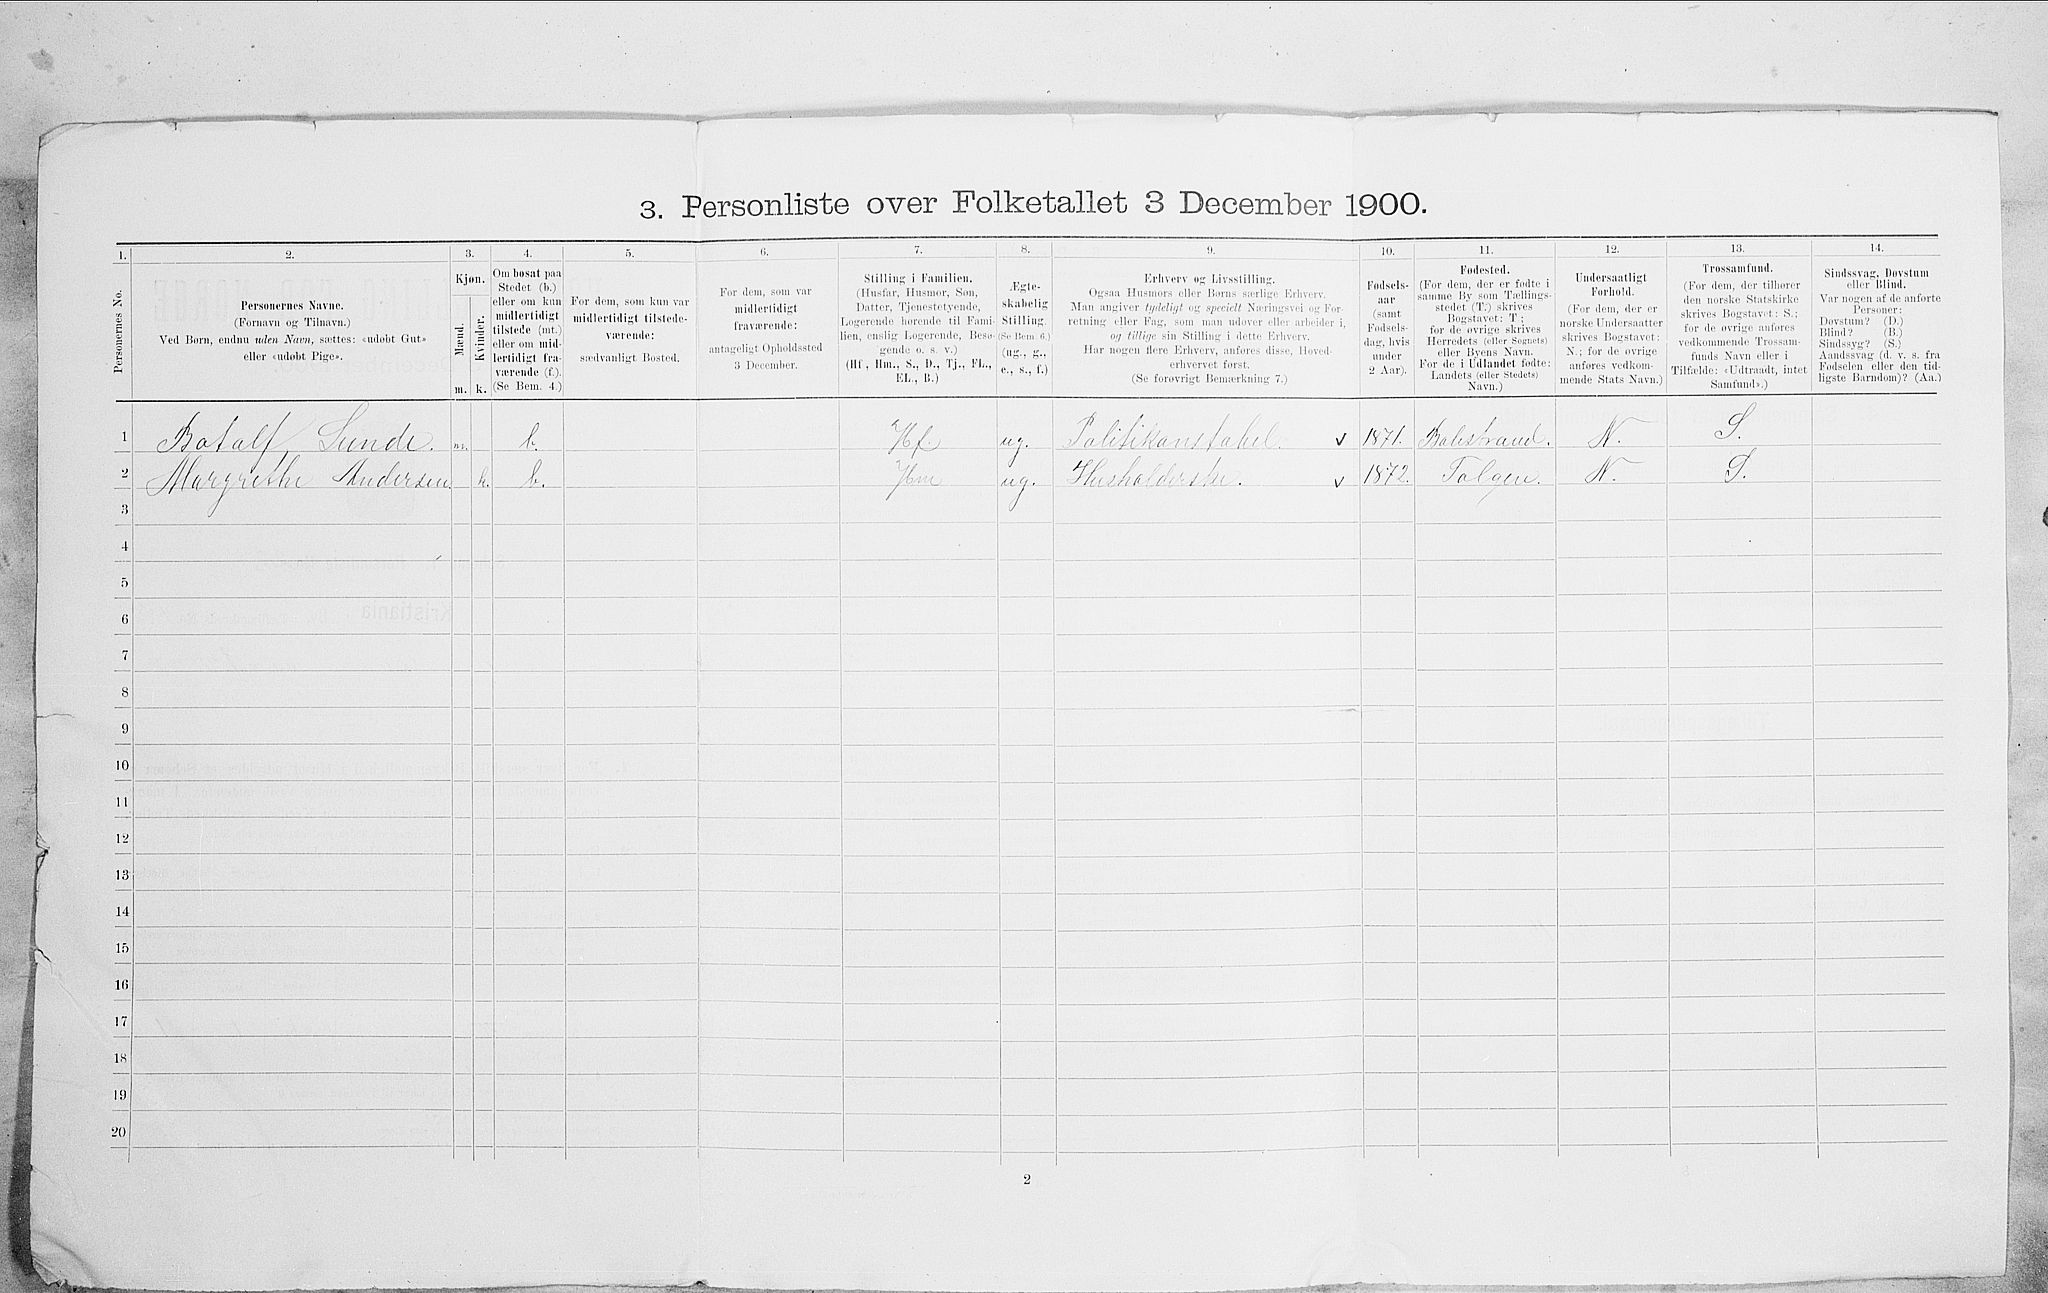 3. Personliste over Folketallet 3 December 1900.
1. 2. 3. 4. 5. 6. 7. 8. 9. 10. 11. 12. 13. 14.
Personernes No.
Personernes Navne.
(Fornavn og Tilnavn.)
Ved Børn, endnu uden Navn, sættes: «udøbt Gut»
eller «udøbt Pige».
Kjøn.
Mænd.
Kvinder.
m. k.
Om bosat paa
Stedet (b.)
eller om kun
midlertidigt
tilstede (mt.)
eller om mid-
lertidigt fra-
værende (f.).
(Se Bem. 4.)
For dem, som kun var
midlertidigt tilstede-
værende:
sædvanligt Bosted.
For dem, som var
midlertidigt
fraværende:
antageligt Opholdssted
3 December.
Stilling i Familien.
(Husfar, Husmor, Søn,
Datter, Tjenestetyende,
Logerende hørende til Fami-
lien, enslig Logerende, Besø-
gende o. s. v.)
(Hf., Hm., S., D., Tj., FL.,
EL., B.)
Ægte-
skabelig
Stilling.
(Se Bem. 6.)
(ug., g.,
e., s., f.)
Erhverv og Livsstilling.
Ogsaa Husmors eller Børns særlige Erhverv.
Man angiver tydeligt og specielt Næringsvei og For-
retning eller Fag, som man udøver eller arbeider i,
og tillige sin Stilling i dette Erhverv.
Har nogen flere Erhverv, anføres disse, Hoved-
erhvervet først.
(Se forøvrigt Bemærkning 7.)
Fødsels-
aar
(samt
Fødsels-
dag, hvis
under
2 Aar).
Fødested.
(For dem, der er fødte i
samme By som Tællings-
stedet (T.) skrives
Bogstavet: T;
for de øvrige skrives
Herredets (eller Sognets)
eller Byens Navn.
For de i Udlandet fødte:
Landets (eller Stedets)
Navn.)
Undersaatligt
Forhold.
(For dem, der er
norske Undersaatter
skrives Bogstavet:
N.; for de øvrige
anføres vedkom-
mende Stats Navn.)
Trossamfund.
(For dem, der tilhører
den norske Statskirke
skrives Bogstavet: S.;
for de øvrige anføres
vedkommende Trossam-
funds Navn eller i
Tilfælde: «Udtraadt, intet
Samfund».)
Sindssvag, Døvstum
eller Blind.
Var nogen af de anførte
Personer:
Døvstum? (D.)
Blind? (B.)
Sindssyg? (S.)
Aandssvag (d. v. s. fra
Fødselen eller den tid-
ligste Barndom)? (Aa.)
1 Botalf Sunde. m. b. Hf. ug. Politikonstabel. v 1871. Balestrand. N. S.
2 Margrethe Andersen. k. b. Hm ug. Husholderske. v 1872. Tolgen. N. S.
3
4
5
6
7
8
9
10
11
12
13
14
15
16
17
18
19
20
2